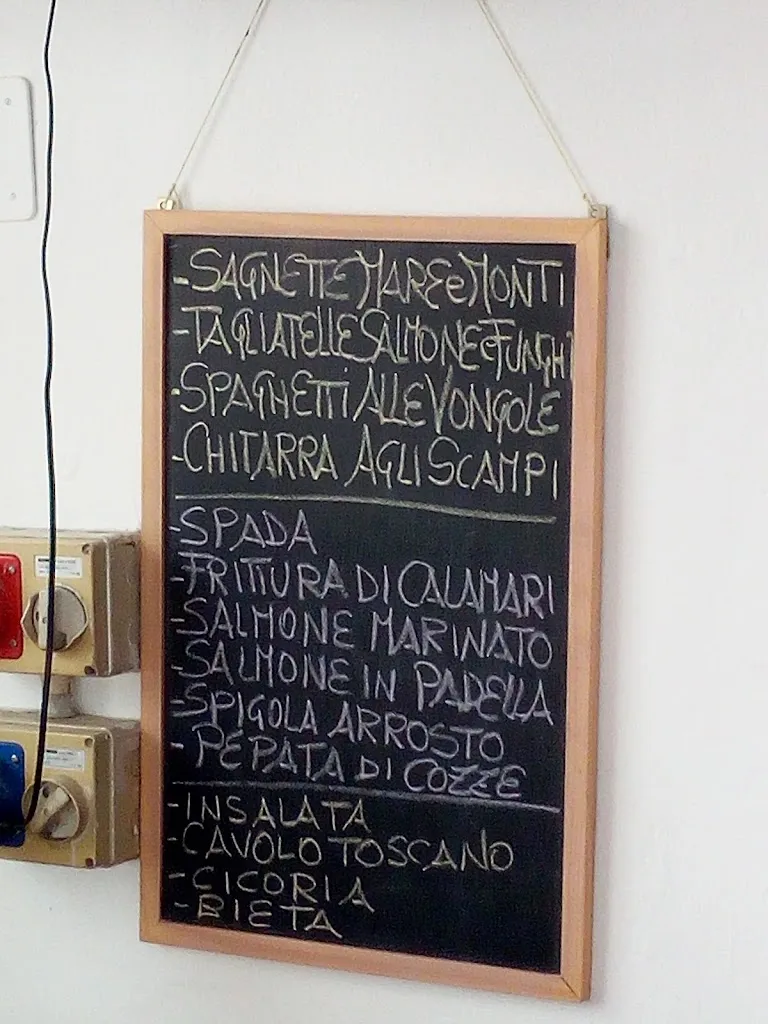 - SAGNETTE MARE e MONTI
- TAGLIATELLE SALMONE e FUNGHI
- SPAGHETTI ALLE VONGOLE
- CHITARRA AGLI SCAMPI
- SPADA
- FRITTURA DI CALAMARI
- SALMONE MARINATO
- SALMONE IN PADELLA
- SPIGOLA ARROSTO
- PEPATA DI COZZE
- INSALATA
- CAVOLO TOSCANO
- CICORIA
- BIETA